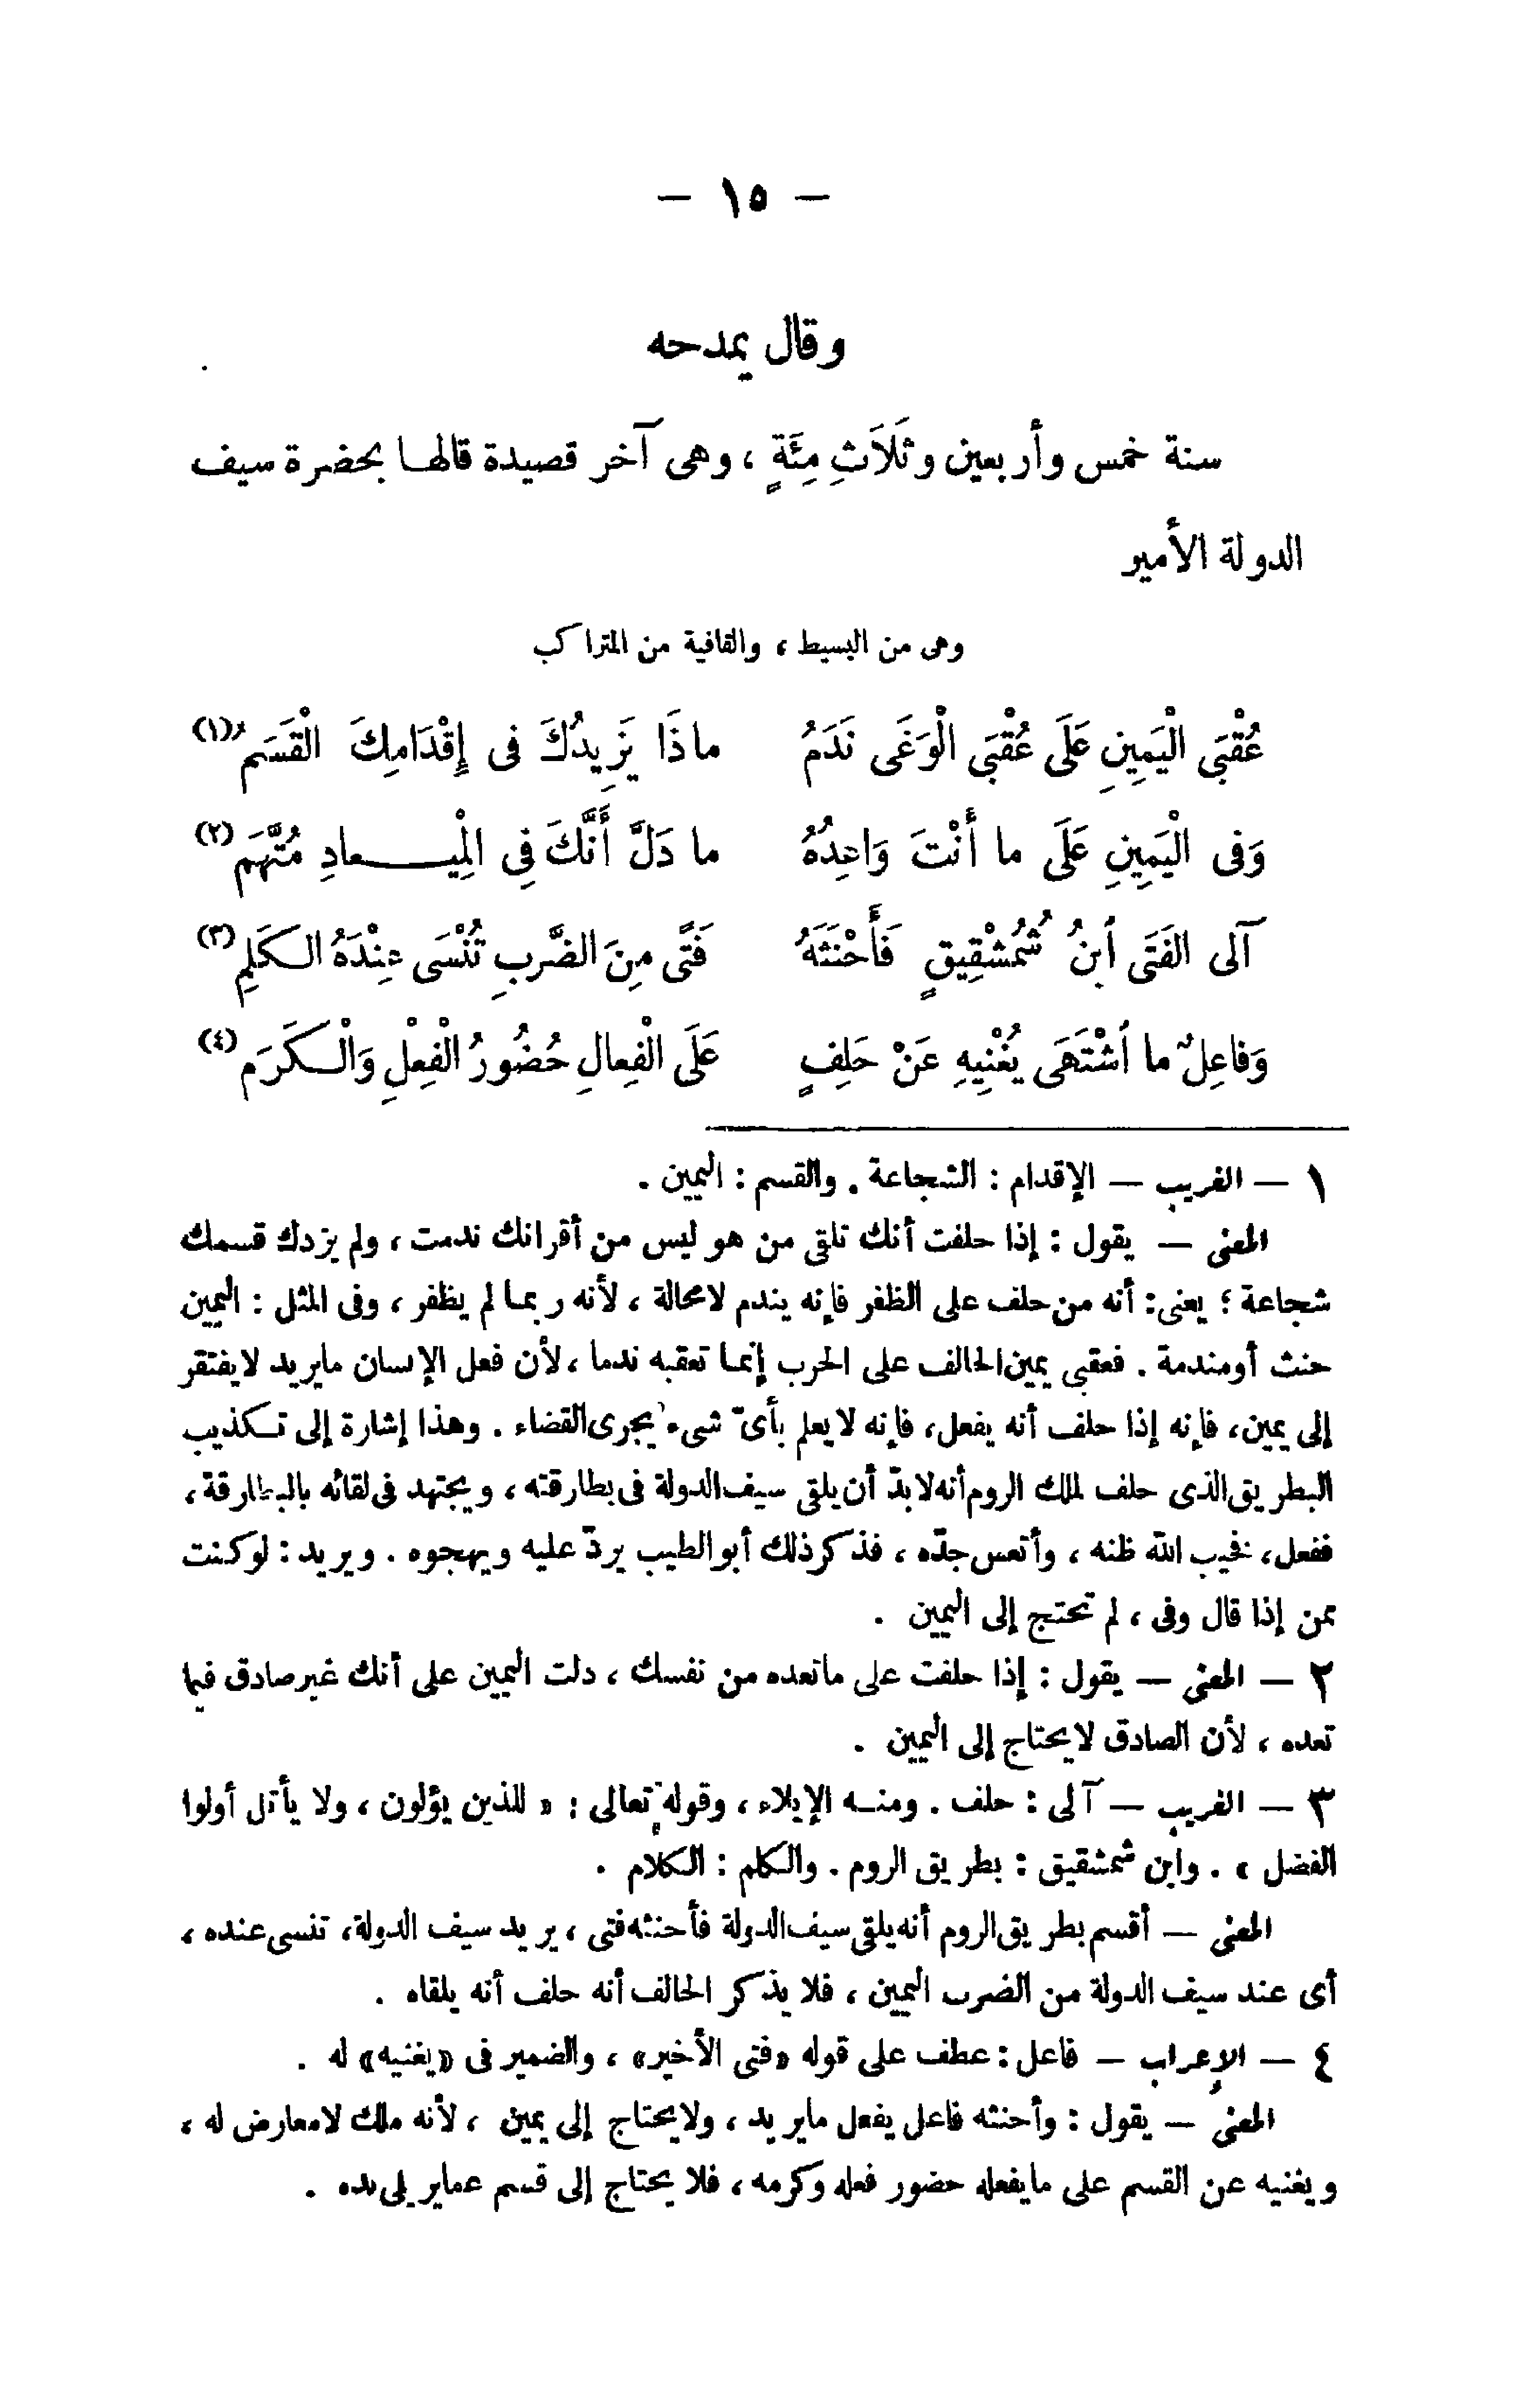 — ١٥ —
وقال يمدحه
سنة خمس وأربعين وثَلَاثِ مِئَةٍ ، وهى آخر قصيدة قالها بحضرة سيف
الدولة الأمير
وهى من البسيط ، والقافية من المتراكب
عُقْبَى الْيَمِينِ عَلَى عُقْبَى الْوَغَى نَدَمُ ماذَا يَزِيدُكَ فى إِقْدَامِكَ الْقَسَمُ (١)
وَفى الْيَمِينِ عَلَى ما أَنْتَ وَاعِدُهُ ما دَلَّ أَنَّكَ فِى الْمِيـــعادِ مُتَّهَمُ (٢)
آلى الفَتَى أبنُ شُمُشْقِيقٍ فَأَحْنَثَهُ فَتًى مِنَ الضَّرْبِ تُنْسَى عِنْدَهُ الـكَلِمُ (٣)
وَفاعِلٌ ما أشْتَهَى يُغْنِيهِ عَنْ حَلِفٍ عَلَى الْفِعالِ حُضُورُ الْفِعْلِ وَالْـكَرَمُ (٤)
١ — الغريب — الإقدام : الشجاعة . والقسم : اليمين .
المعنى — يقول : إذا حلفت أنك تلقى من هو ليس من أقرانك ندمت ، ولم يزدك قسمك
شجاعة ؛ يعنى : أنه من حلف على الظفر فإنه يندم لامحالة ، لأنه ربما لم يظفر ، وفى المثل : اليمين
حنث أومندمة . فعقبى يمين الحالف على الحرب إنما تعقبه ندما ، لأن فعل الإنسان مايريد لايفتقر
إلى يمين، فإنه إذا حلف أنه يفعل، فإنه لايعلم بأىّ شىء يجرى القضاء . وهذا إشارة إلى تـكذيب
البطريق الذى حلف لملك الروم أنه لابدّ أن يلقى سيف الدولة فى بطارقته ، ويجتهد فى لقائه بالبطارقة ،
ففعل، فخيب الله ظنه ، وأتعس جدّه ، فذكر ذلك أبو الطيب يردّ عليه ويهجوه . ويريد : لوكنت
ممن إذا قال وفى ، لم تحتج إلى اليمين .
٢ — المعنى — يقول : إذا حلفت على ماتعده من نفسك ، دلت اليمين على أنك غير صادق فيما
تعده ، لأن الصادق لايحتاج إلى اليمين .
٣ — الغريب — آلى : حلف . ومنـه الإيلاء ، وقوله تعالى : « للذين يؤلون ، ولا يأتل أولوا
الفضل » . وابن شمشقيق : بطريق الروم . والكلم : الكلام .
المعنى — أقسم بطريق الروم أنه يلقى سيف الدولة فأحنثه فتى ، يريد سيف الدولة، تنسى عنده ،
أى عند سيف الدولة من الضرب اليمين ، فلا يذكر الحالف أنه حلف أنه يلقاه .
٤ — الإعراب — فاعل : عطف على قوله «فتى الأخير» ، والضمير فى «يغنيه» له .
المعنى — يقول : وأحنثه فاعل يفعل مايريد ، ولايحتاج إلى يمين ، لأنه ملك لامعارض له ،
ويغنيه عن القسم على مايفعله حضور فعله وكرمه ، فلا يحتاج إلى قسم